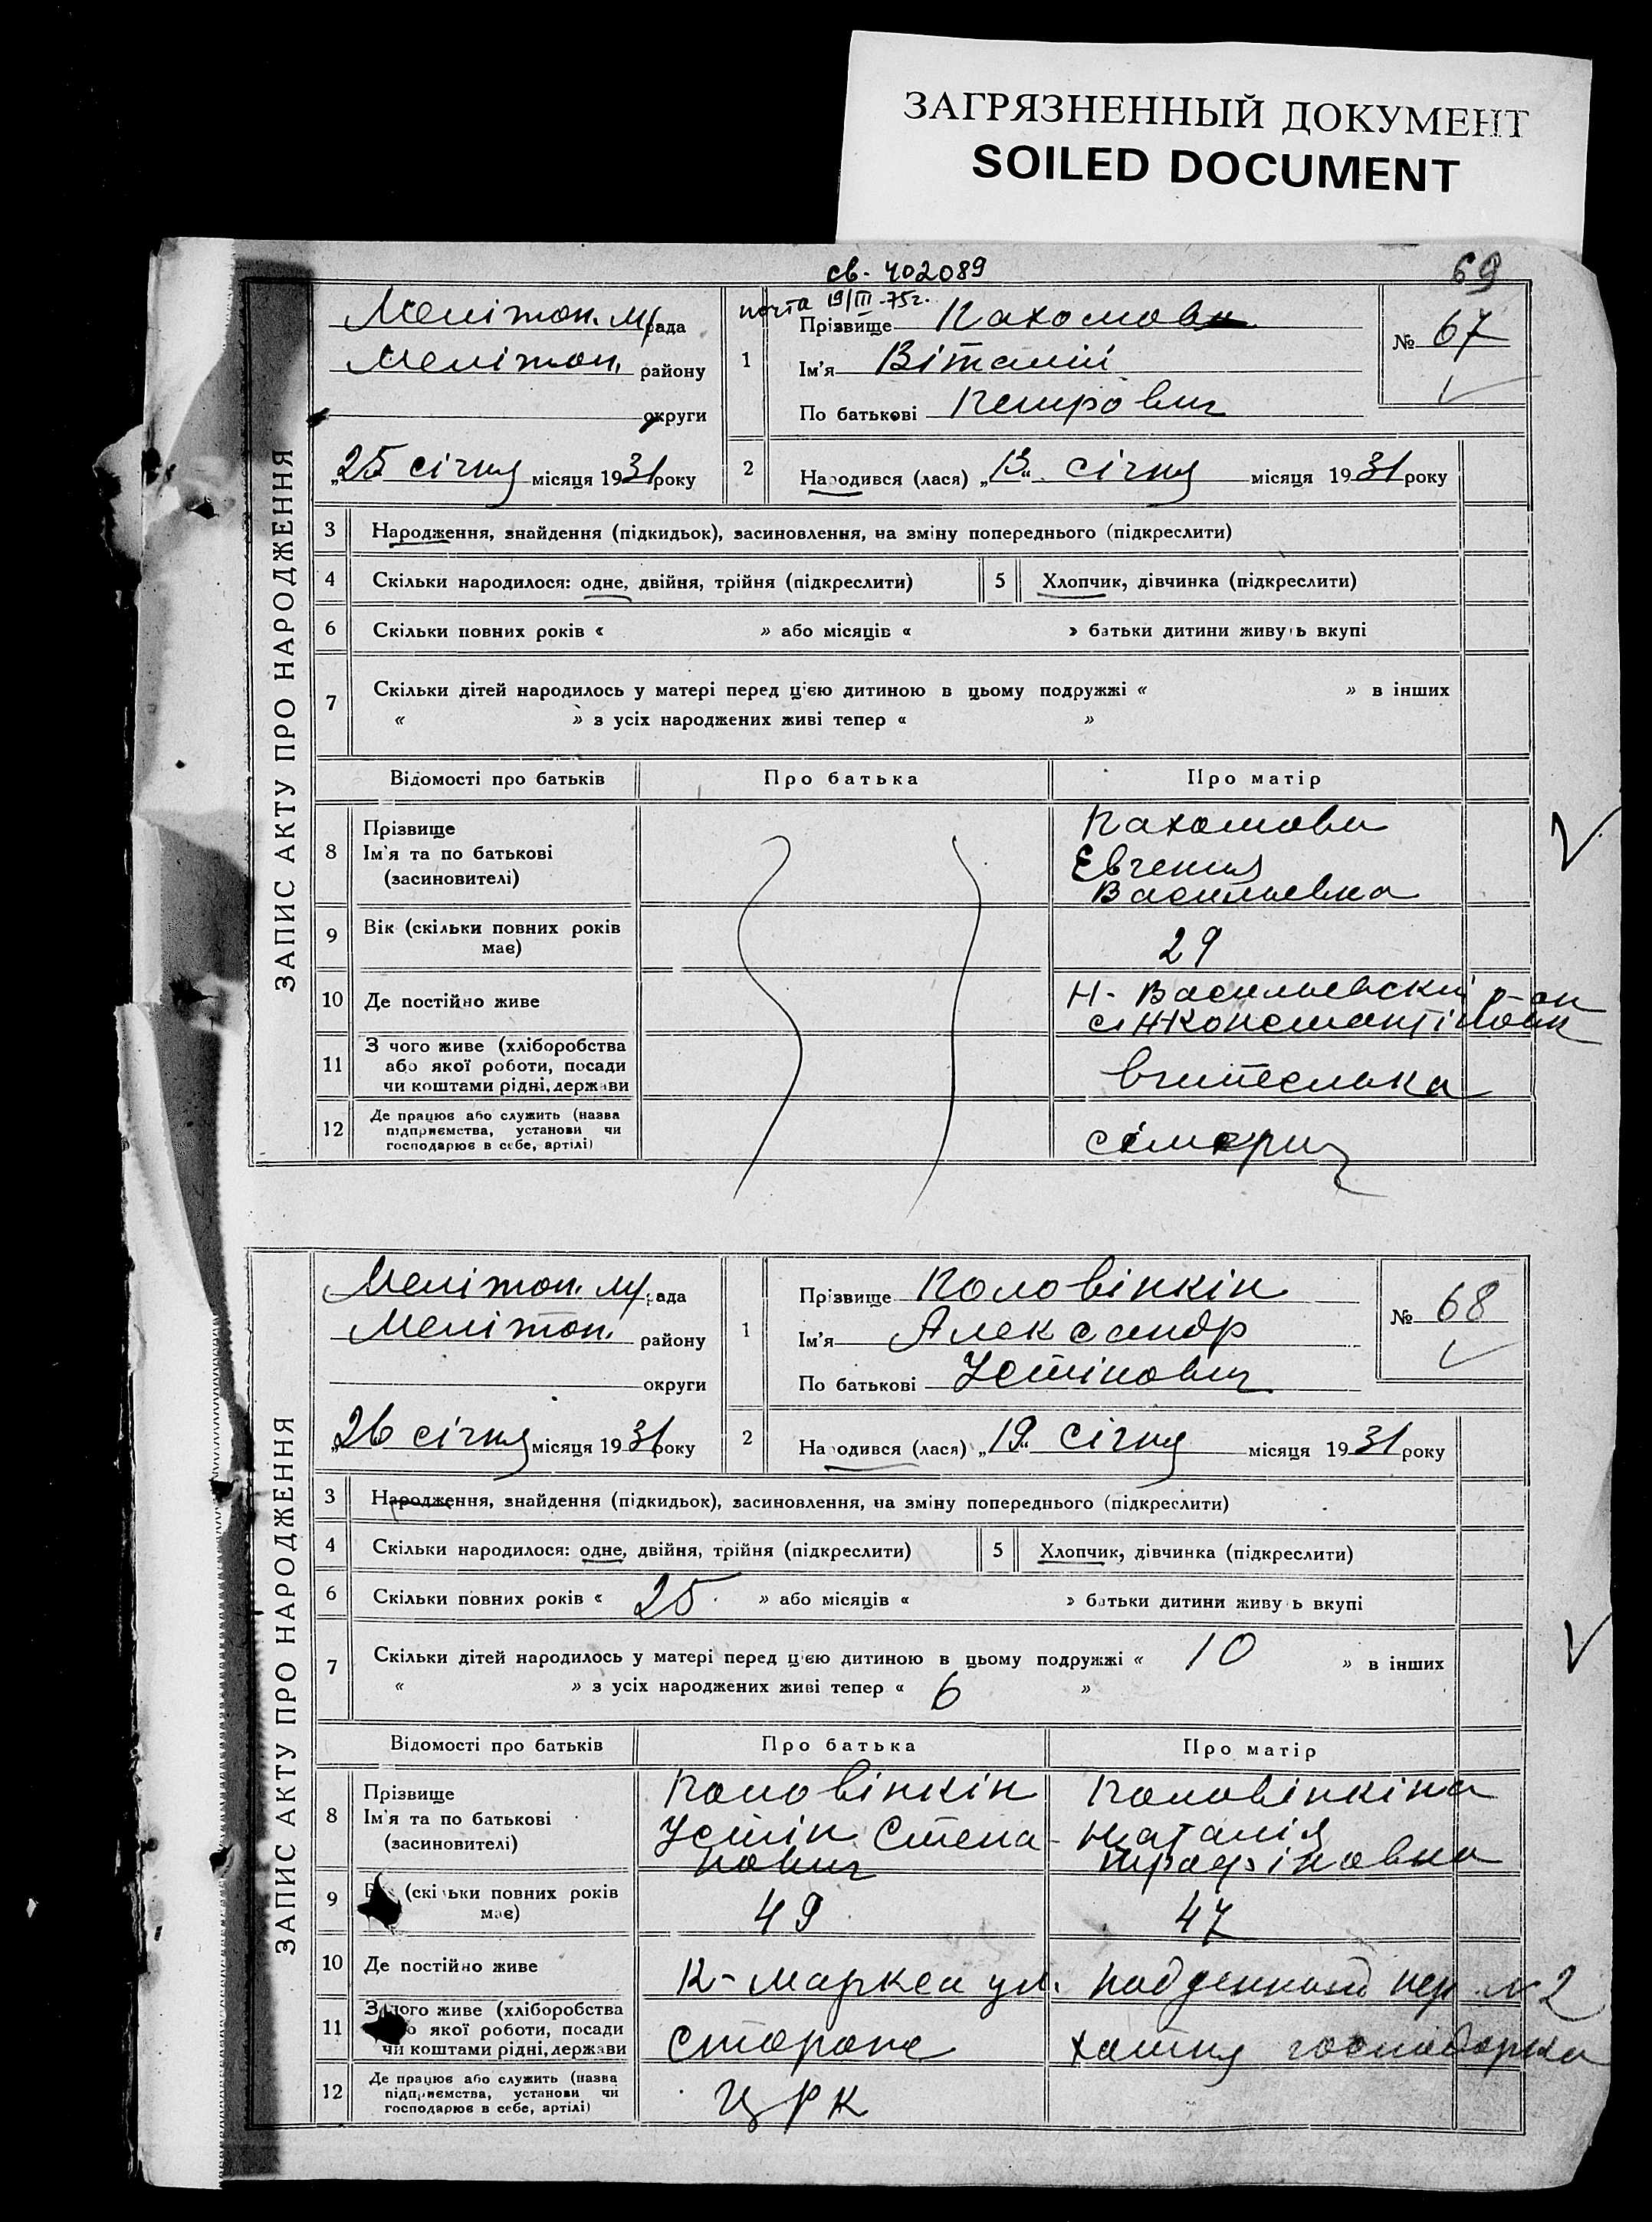 ЗАГРЯЗНЕННЫЙ ДОКУМЕНТ
SOILED DOCUMENT
св. 402089
69
почта 19/III-75г.
ЗАПИС АКТУ ПРО НАРОДЖЕННЯ
Мелітоп. м/рада
Мелітоп. району
округи
„25 січня місяця 1931 року
1 Прізвище Пахомов
Ім'я Віталій
По батькові Петрович
№ 67
2 Народився (лася) „13“ січня місяця 1931 року
3 Народження, знайдення (підкидьок), засиновлення, на зміну попереднього (підкреслити)
4 Скільки народилося: одне, двійня, трійня (підкреслити) 5 Хлопчик, дівчинка (підкреслити)
6 Скільки повних років « » або місяців « » батьки дитини живуть вкупі
7 Скільки дітей народилось у матері перед цією дитиною в цьому подружжі « » в інших
« » з усіх народжених живі тепер « »
Відомості про батьків Про батька Про матір
8 Прізвище
Ім'я та по батькові
(засиновителі)
Пахомова
Евгения
Васильевна
9 Вік (скільки повних років
має)
29
10 Де постійно живе
Н-Васильевский р-он
с. Н-Константіновк
11 З чого живе (хліборобства
або якої роботи, посади
чи коштами рідні, держави
вчителька
12 Де працює або служить (назва
підприємства, установи чи
господарює в себе, артілі)
ЗАПИС АКТУ ПРО НАРОДЖЕННЯ
Мелітоп. м/рада
Мелітоп. району
округи
„26 січня місяця 1931 року
1 Прізвище Половінкін
Ім'я Александр
По батькові Устінович
№ 68
2 Народився (лася) „19“ січня місяця 1931 року
3 Народження, знайдення (підкидьок), засиновлення, на зміну попереднього (підкреслити)
4 Скільки народилося: одне, двійня, трійня (підкреслити) 5 Хлопчик, дівчинка (підкреслити)
6 Скільки повних років « 25 » або місяців « » батьки дитини живуть вкупі
7 Скільки дітей народилось у матері перед цією дитиною в цьому подружжі « 10 » в інших
« » з усіх народжених живі тепер « 6 »
Відомості про батьків Про батька Про матір
8 Прізвище
Ім'я та по батькові
(засиновителі)
Половінкін
Устін Степа-
нович
Половінкіна
Наталія
Трофіновна
9 Вік (скільки повних років
має)
49 47
10 Де постійно живе
К-Маркса ул. пер №2
11 З чого живе (хліборобства
або якої роботи, посади
чи коштами рідні, держави
Сторож хатня господарка
12 Де працює або служить (назва
підприємства, установи чи
господарює в себе, артілі)
ЦРК